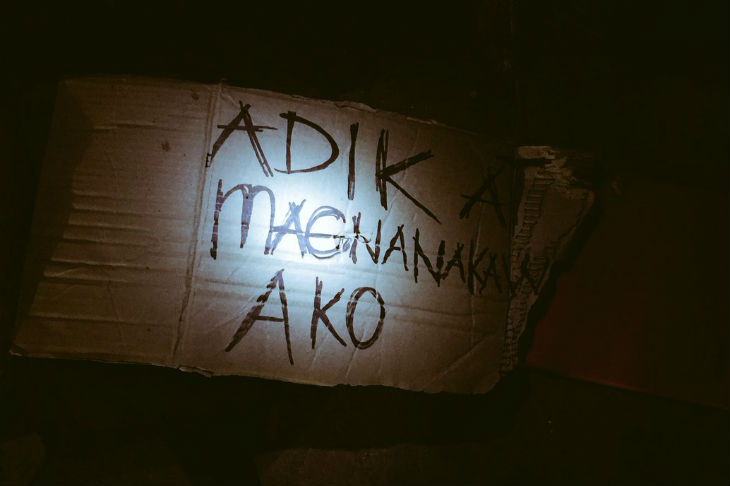 ADIK AT
MAGNANAKAW
AKO